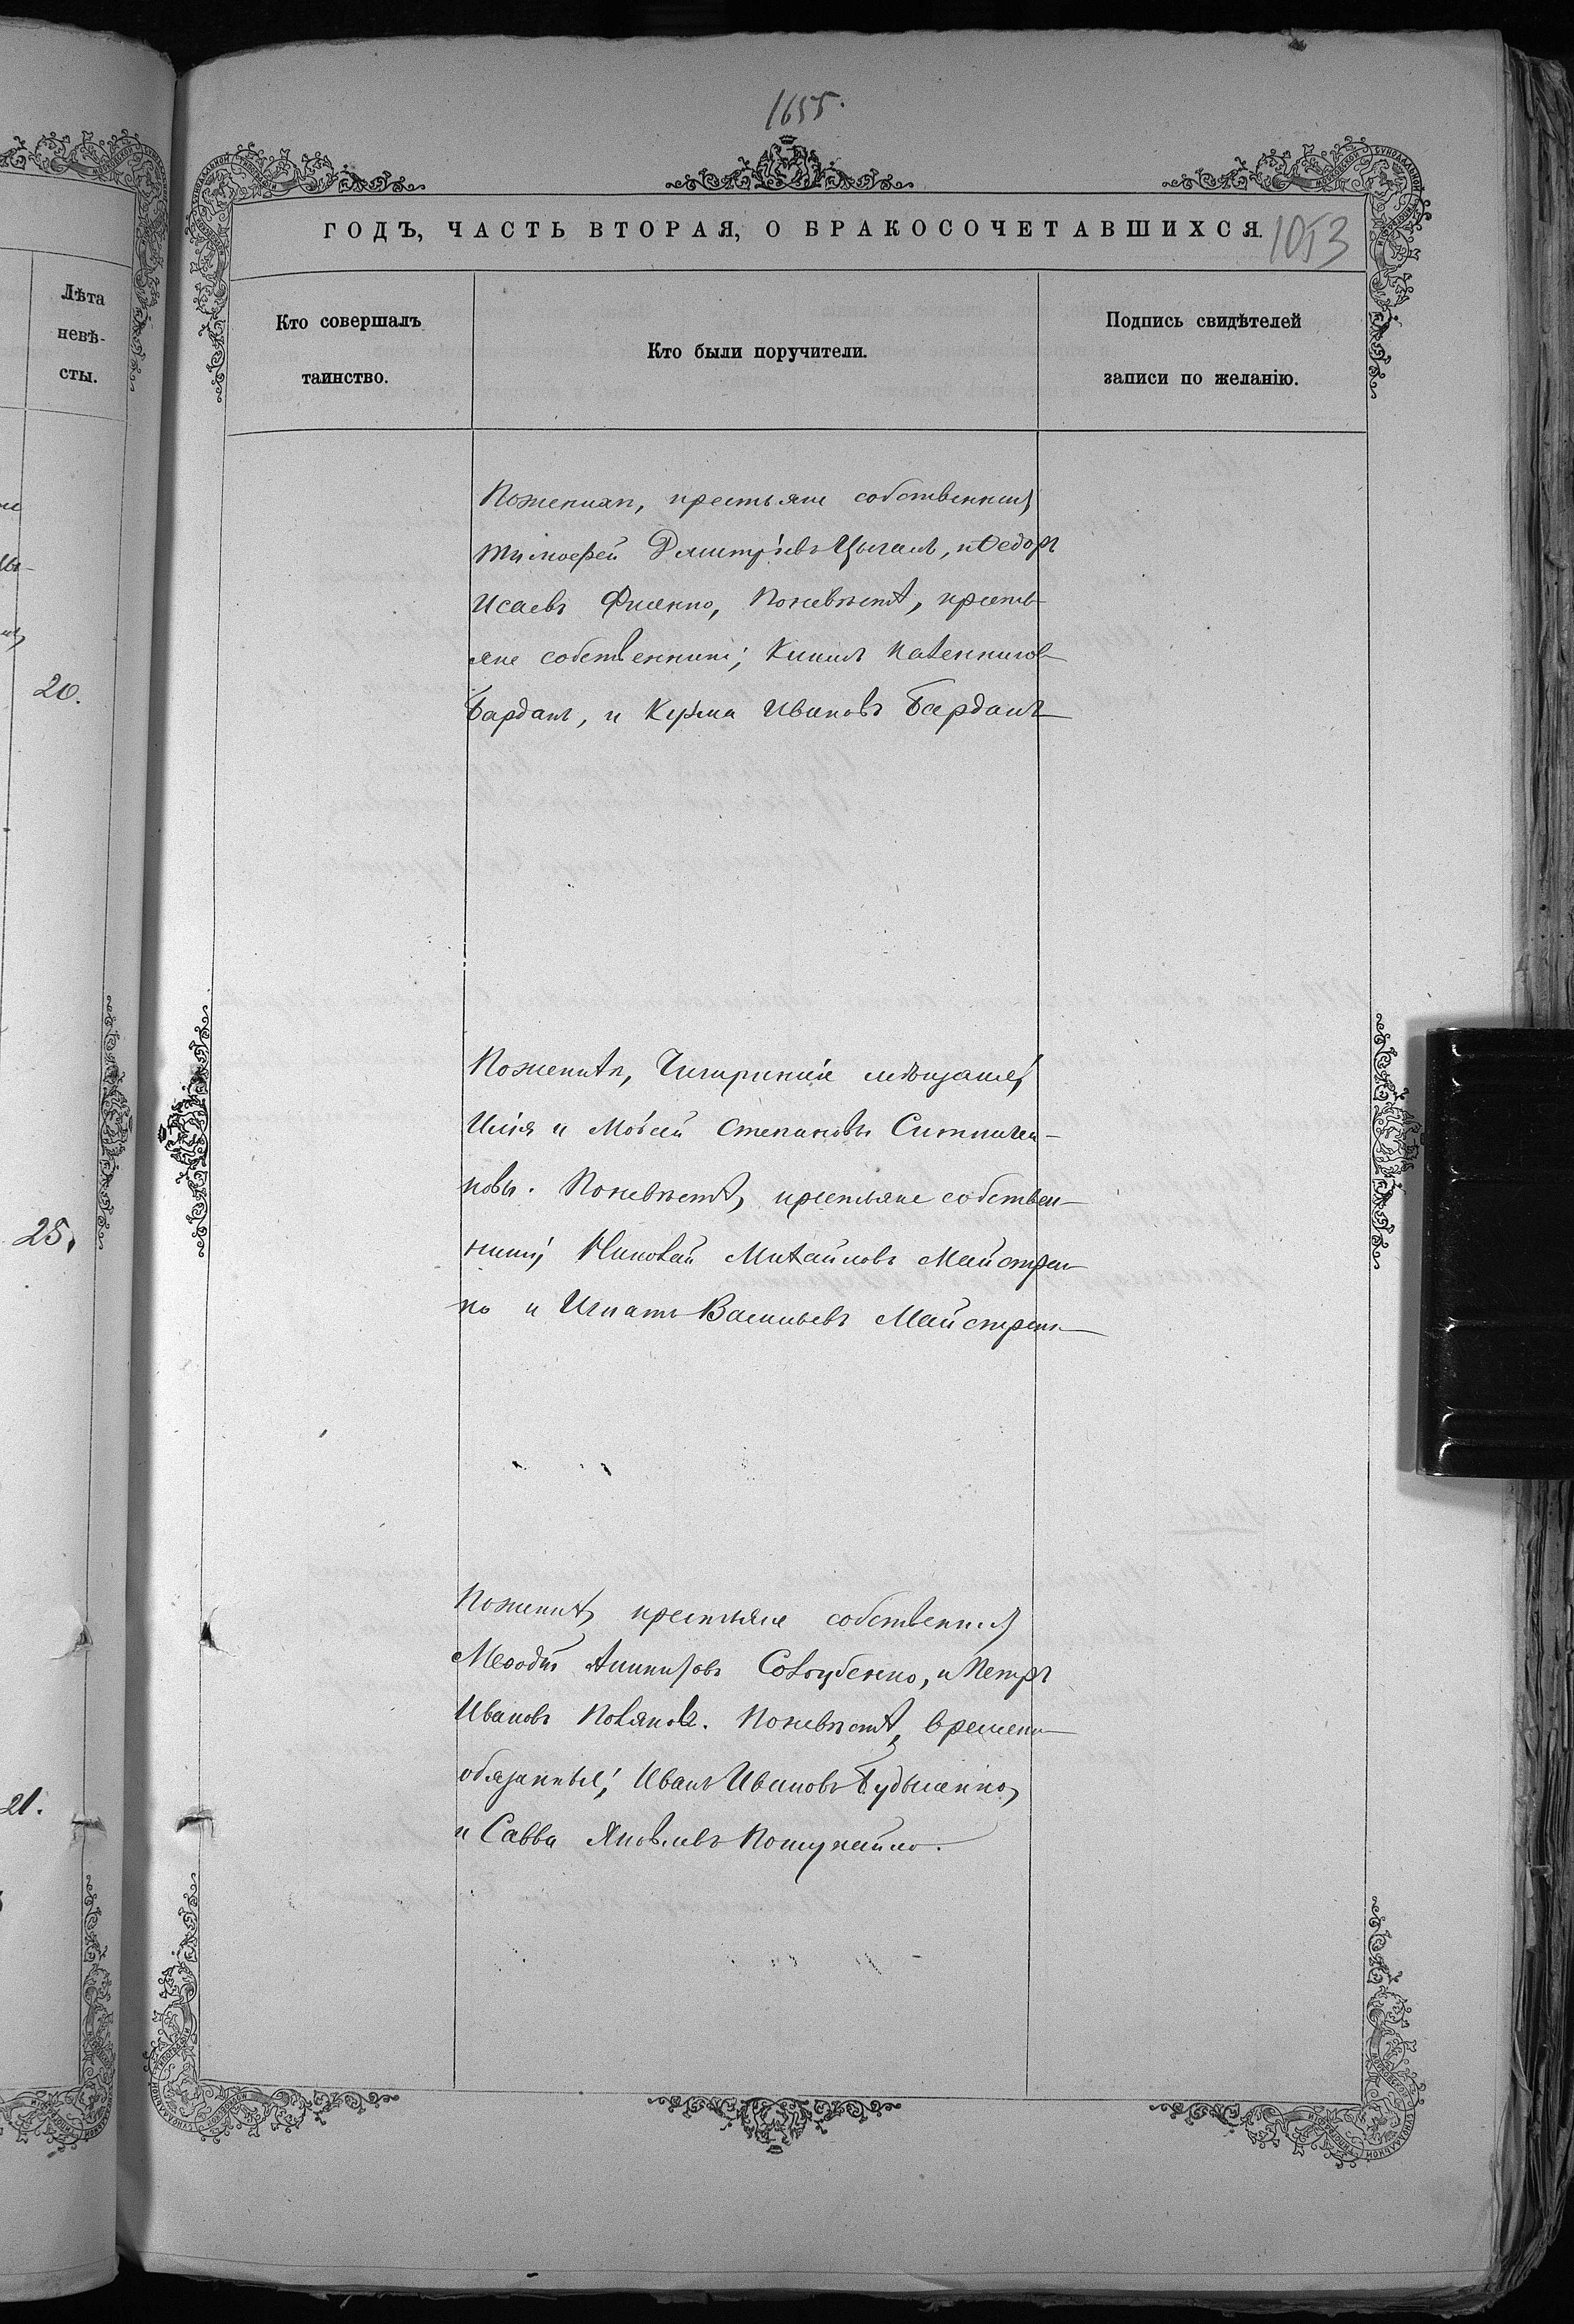 1655.
ГОДЪ, ЧАСТЬ ВТОРАЯ, О БРАКОСОЧЕТАВШИХСЯ.
1053
Лѣта
невѣ-
сты.
20.
25.
21.
Кто совершалъ
таинство.
Кто были поручители.
Подпись свидѣтелей
записи по желанію.
Поженихѣ, крестьяне собственники
Тимоѳей Дмитріевъ Цыганъ, и Ѳедоръ
Исаевъ Фисенко, Поневѣстѣ, кресть-
яне собственники; Калениковъ
Барданъ, и Кузьма Ивановъ Барданъ
Поженихѣ, Чигиринскіе мѣщане;
Илія и Моѵсей Степановы Ситничен-
ковы. Поневѣстѣ, крестьяне собствен-
ники; Николай Михайловъ Майстрен-
ко и Игнатъ Васильевъ Майстренко
Поженихѣ, крестьяне собственники
Меѳодій Голубенко, и Петръ
Ивановъ Поляковъ. Поневѣстѣ, временно
обязанные; Иванъ Ивановъ
и Савва Яковлевъ Потупайло.